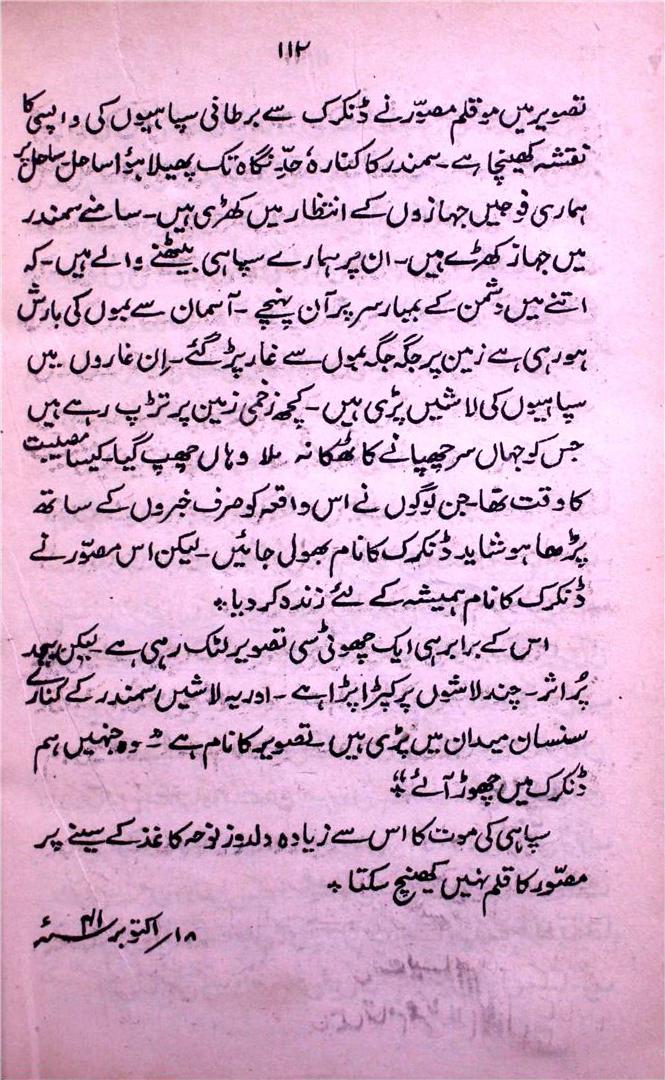 ۱۱۲
تصویر میں موقلم مصوّر نے ڈنکرک سے برطانی سپاہیوں کی واپسی کا
نقشہ کھینچا ہے۔ سمندر کا کنارہ حدِّ نگاہ تک پھیلا ہؤا ساحل ساحل پر
ہماری فوجیں جہازوں کے انتظار میں کھڑی ہیں۔ سامنے سمندر
میں جہاز کھڑے ہیں۔ ان پر ہمارے سپاہی بیٹھنے والے ہیں۔ کہ
اتنے میں دشمن کے بمبار سر پر آن پہنچے ۔ آسمان سے بموں کی بارش
ہو رہی ہے زمین پر جگہ جگہ بموں سے غار پڑ گئے۔ اِن غاروں میں
سپاہیوں کی لاشیں پڑی ہیں۔ کچھ زخمی زمین پر تڑپ رہے ہیں
جس کو جہاں سر چھپانے کا ٹھکانہ ملا وہاں چھپ گیا۔ کیسا مصیبت
کا وقت تھا۔ جن لوگوں نے اس واقعہ کو صرف خبروں کے ساتھ
پڑھا ہو شاید ڈنکرک کا نام بھول جائیں۔ لیکن اس مصوّر نے
ڈنکرک کا نام ہمیشہ کے لئے زندہ کر دیا٭
اس کے برابر ہی ایک چھوٹی سی تصویر لٹک رہی ہے ۔ لیکن بیحد
پُر اثر۔ چند لاشوں پر کپڑا پڑا ہے ۔ اور یہ لاشیں سمندر کے کنارے
سنسان میدان میں پڑی ہیں ۔ تصویر کا نام ہے " وہ جنہیں ہم
ڈنکرک میں چھوڑ آئے"٭
سپاہی کی موت کا اس سے زیادہ دلدوز نوحہ کاغذ کے سینے پر
مصوّر کا قلم نہیں کھینچ سکتا ٭
۱۸/ اکتوبر ۴۱ سنہء